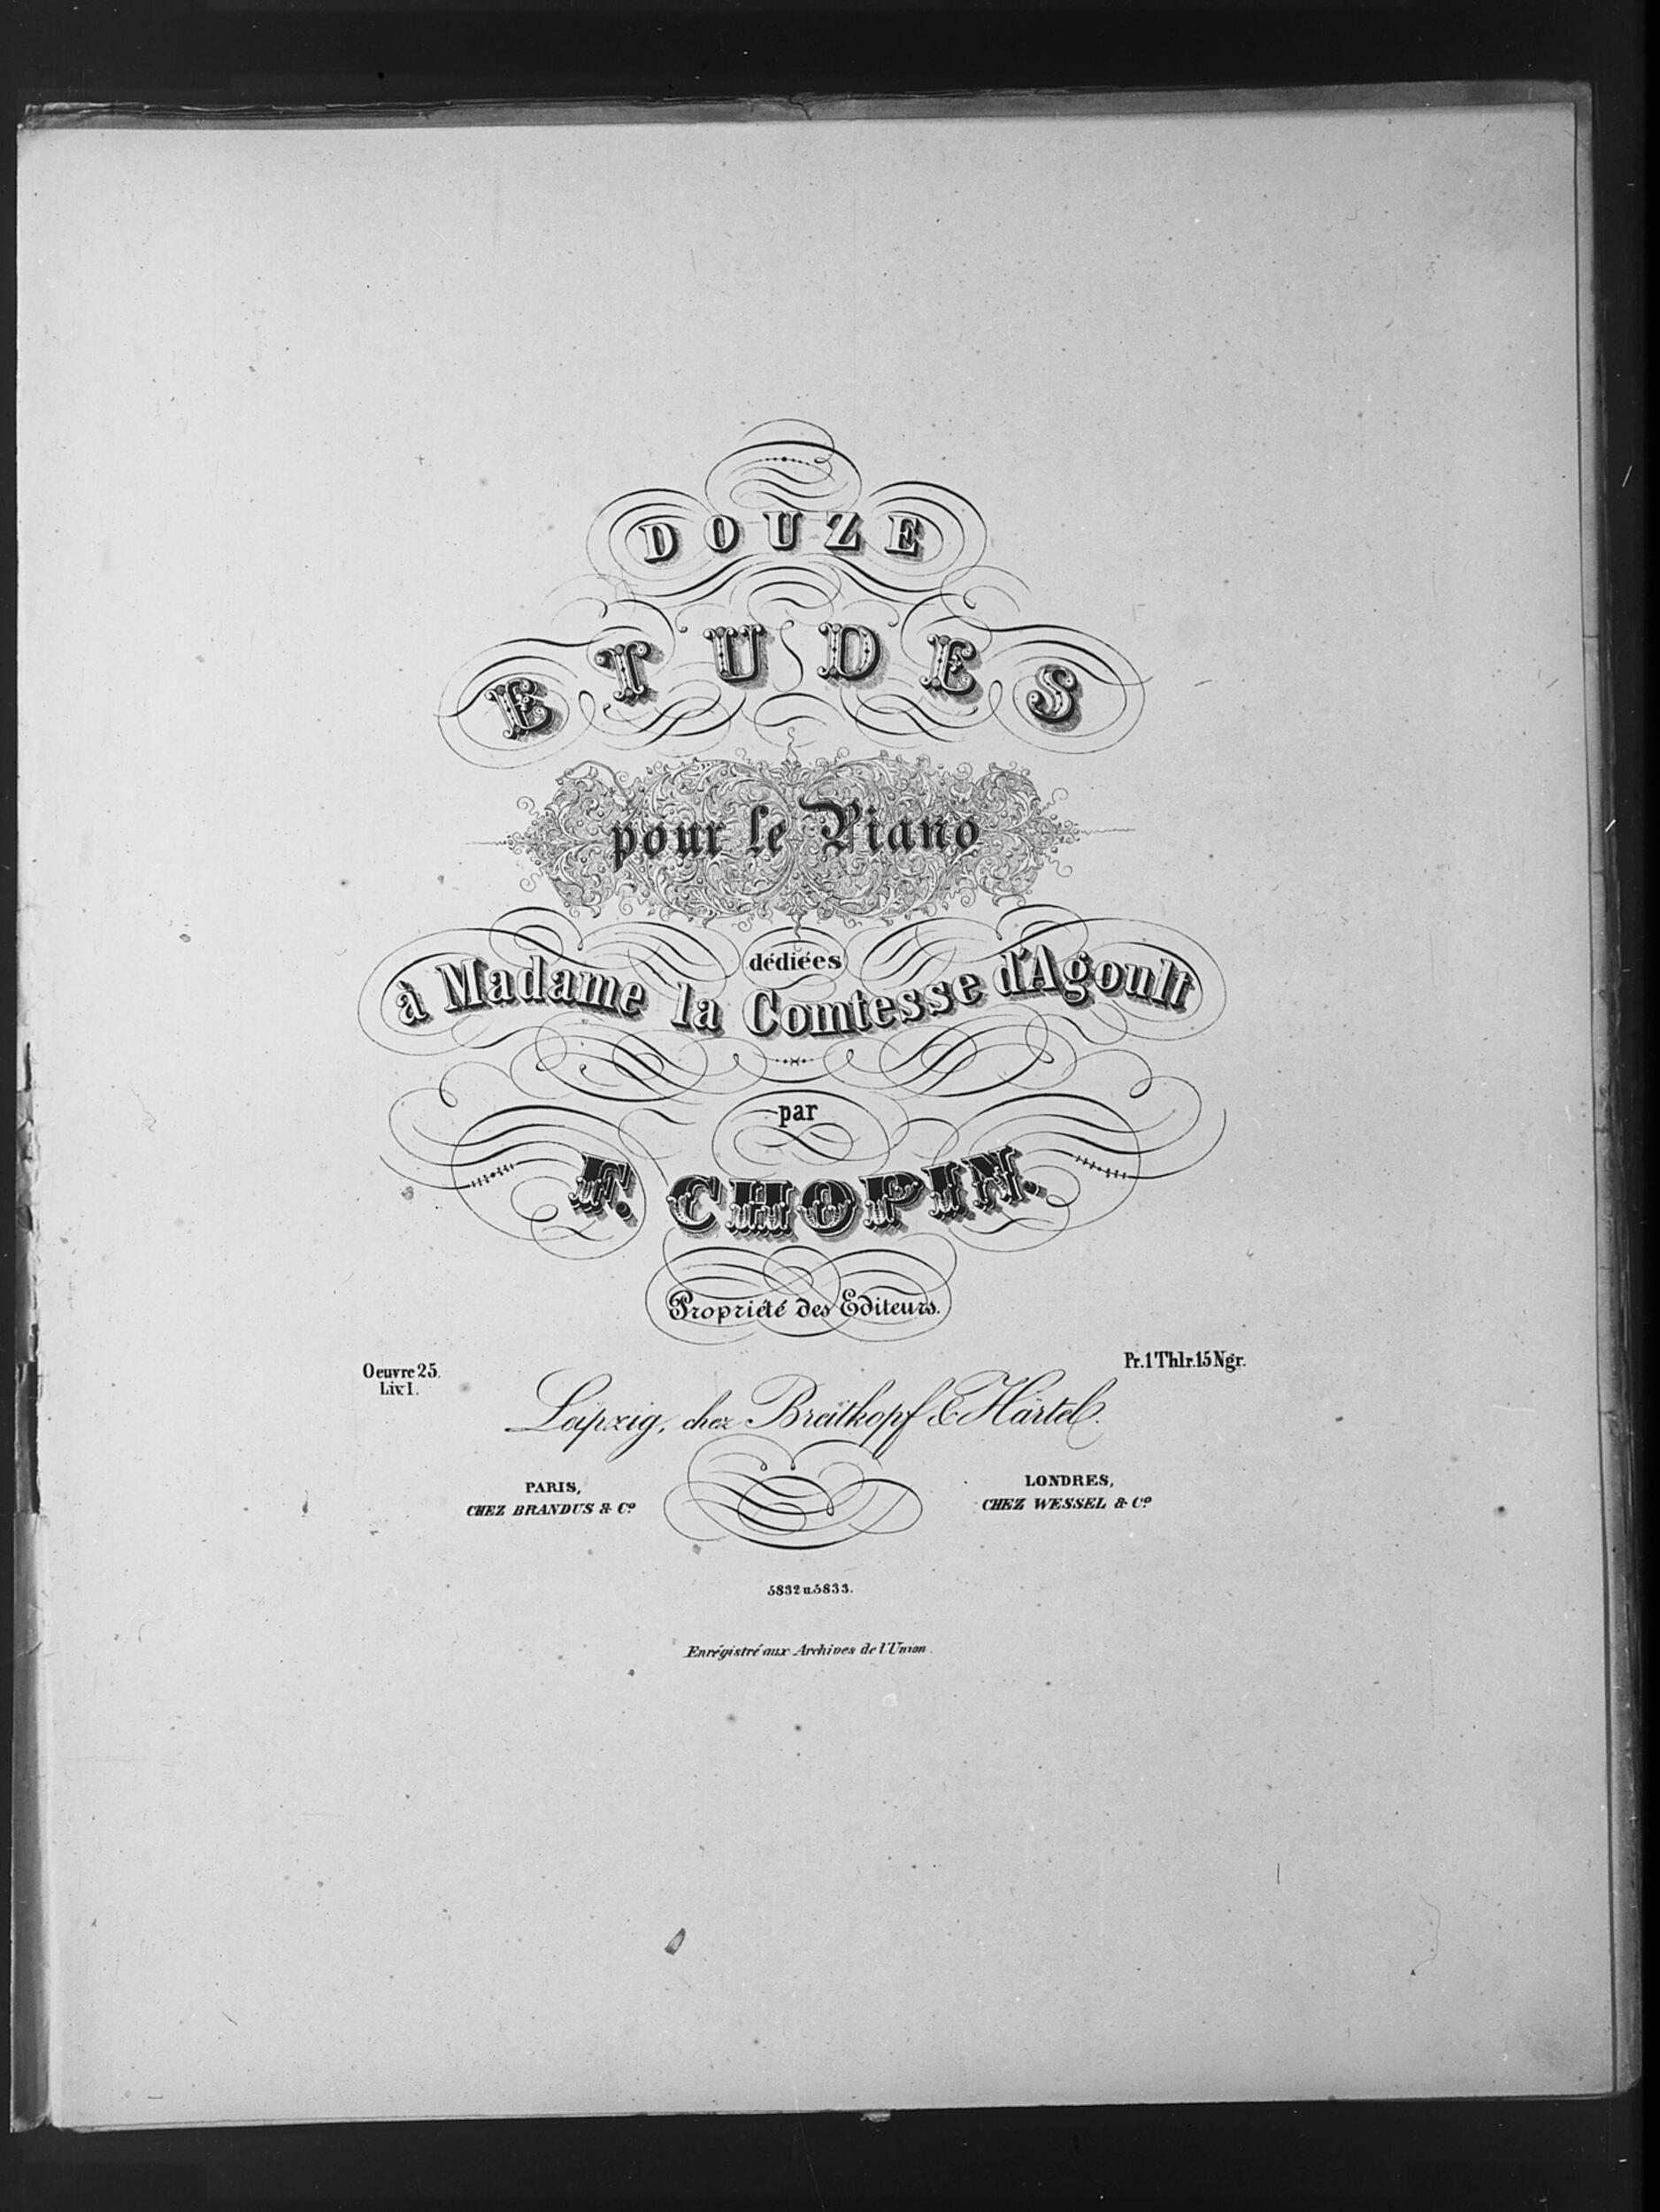 DOUZE
ETUDES
pour le Piano
dédiées
à Madame la Comtesse d'Agoult
par
F. CHOPIN.
Propriété des Editeurs.
Oeuvre 25.
Liv. I.
Pr. 1 Thlr. 15 Ngr.
Leipzig, chez Breitkopf & Härtel.
PARIS,
CHEZ BRANDUS & Co.
LONDRES,
CHEZ WESSEL & Co.
5832 u. 5833.
Enrégistré aux Archives de l'Union.